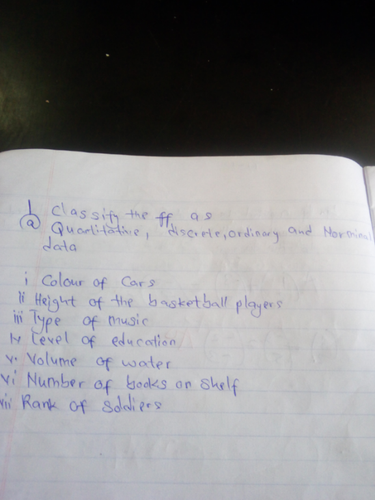 1 Classify the ff as
(a) Qualitative, discrete, ordinary and Norminal
data
i Colour of Cars
ii Height of the basketball players
iii Type of music
iv Level of education
v. Volume of water
vi Number of books on shelf
vii Rank of Soldiers